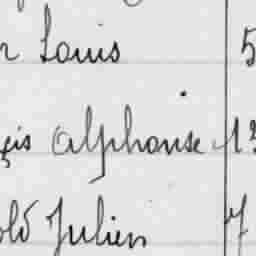 r Louis 5
çis Alphonse 13
old Julien 7